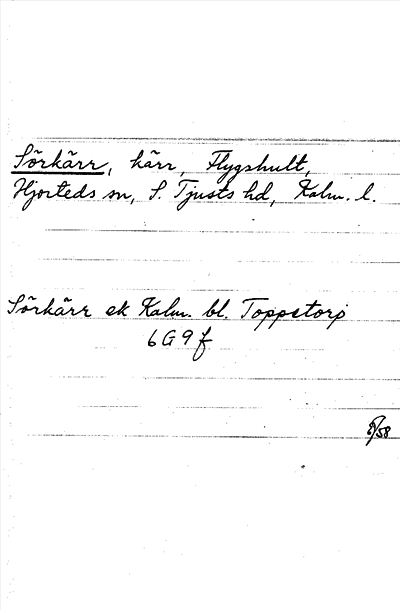 Sörkärr, kärr, Flygshult,
Hjorteds sn, S. Tjusts hd, Kalm. l.
Sörkärr ek Kalm. bl. Toppetorp
6G9f
/58